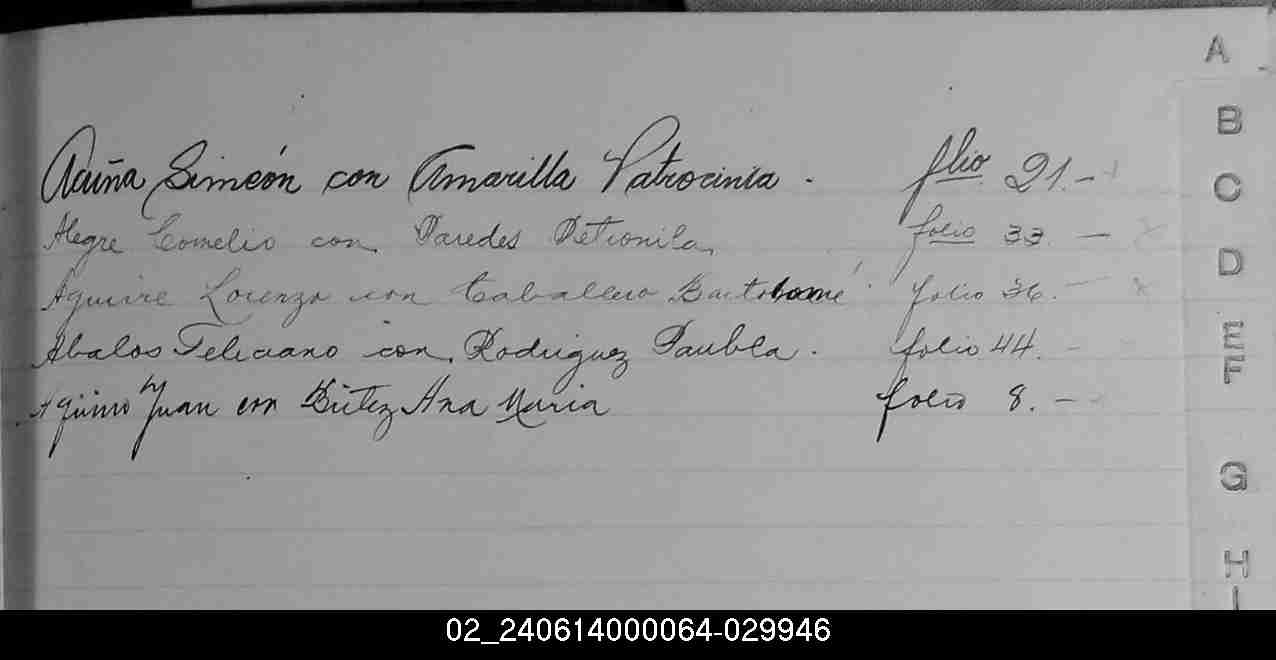 A
Acuña Simeón con Amarilla Patrocinia. flio 21.-
B
C
Alegre Cornelio con Paredes Petronila, folio 33. -
D
Aguirre Lorenzo con Caballero Bartolomé folio 36. -
E
Abalos Feliciano con Rodriguez Paubla. folio 44. -
F
Aquino Juan con Brítez Ana Maria folio 8. -
G
H
I
02_240614000064-029946